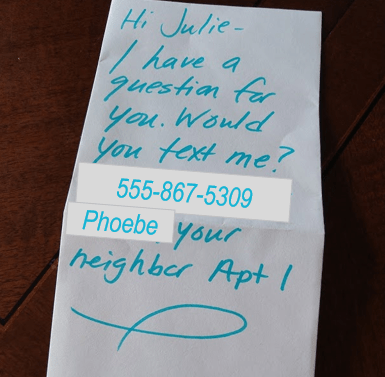 Hi Julie-
I have a
question for
you. Would
you text me?
555-867-5309
Phoebe your
neighbor Apt 1